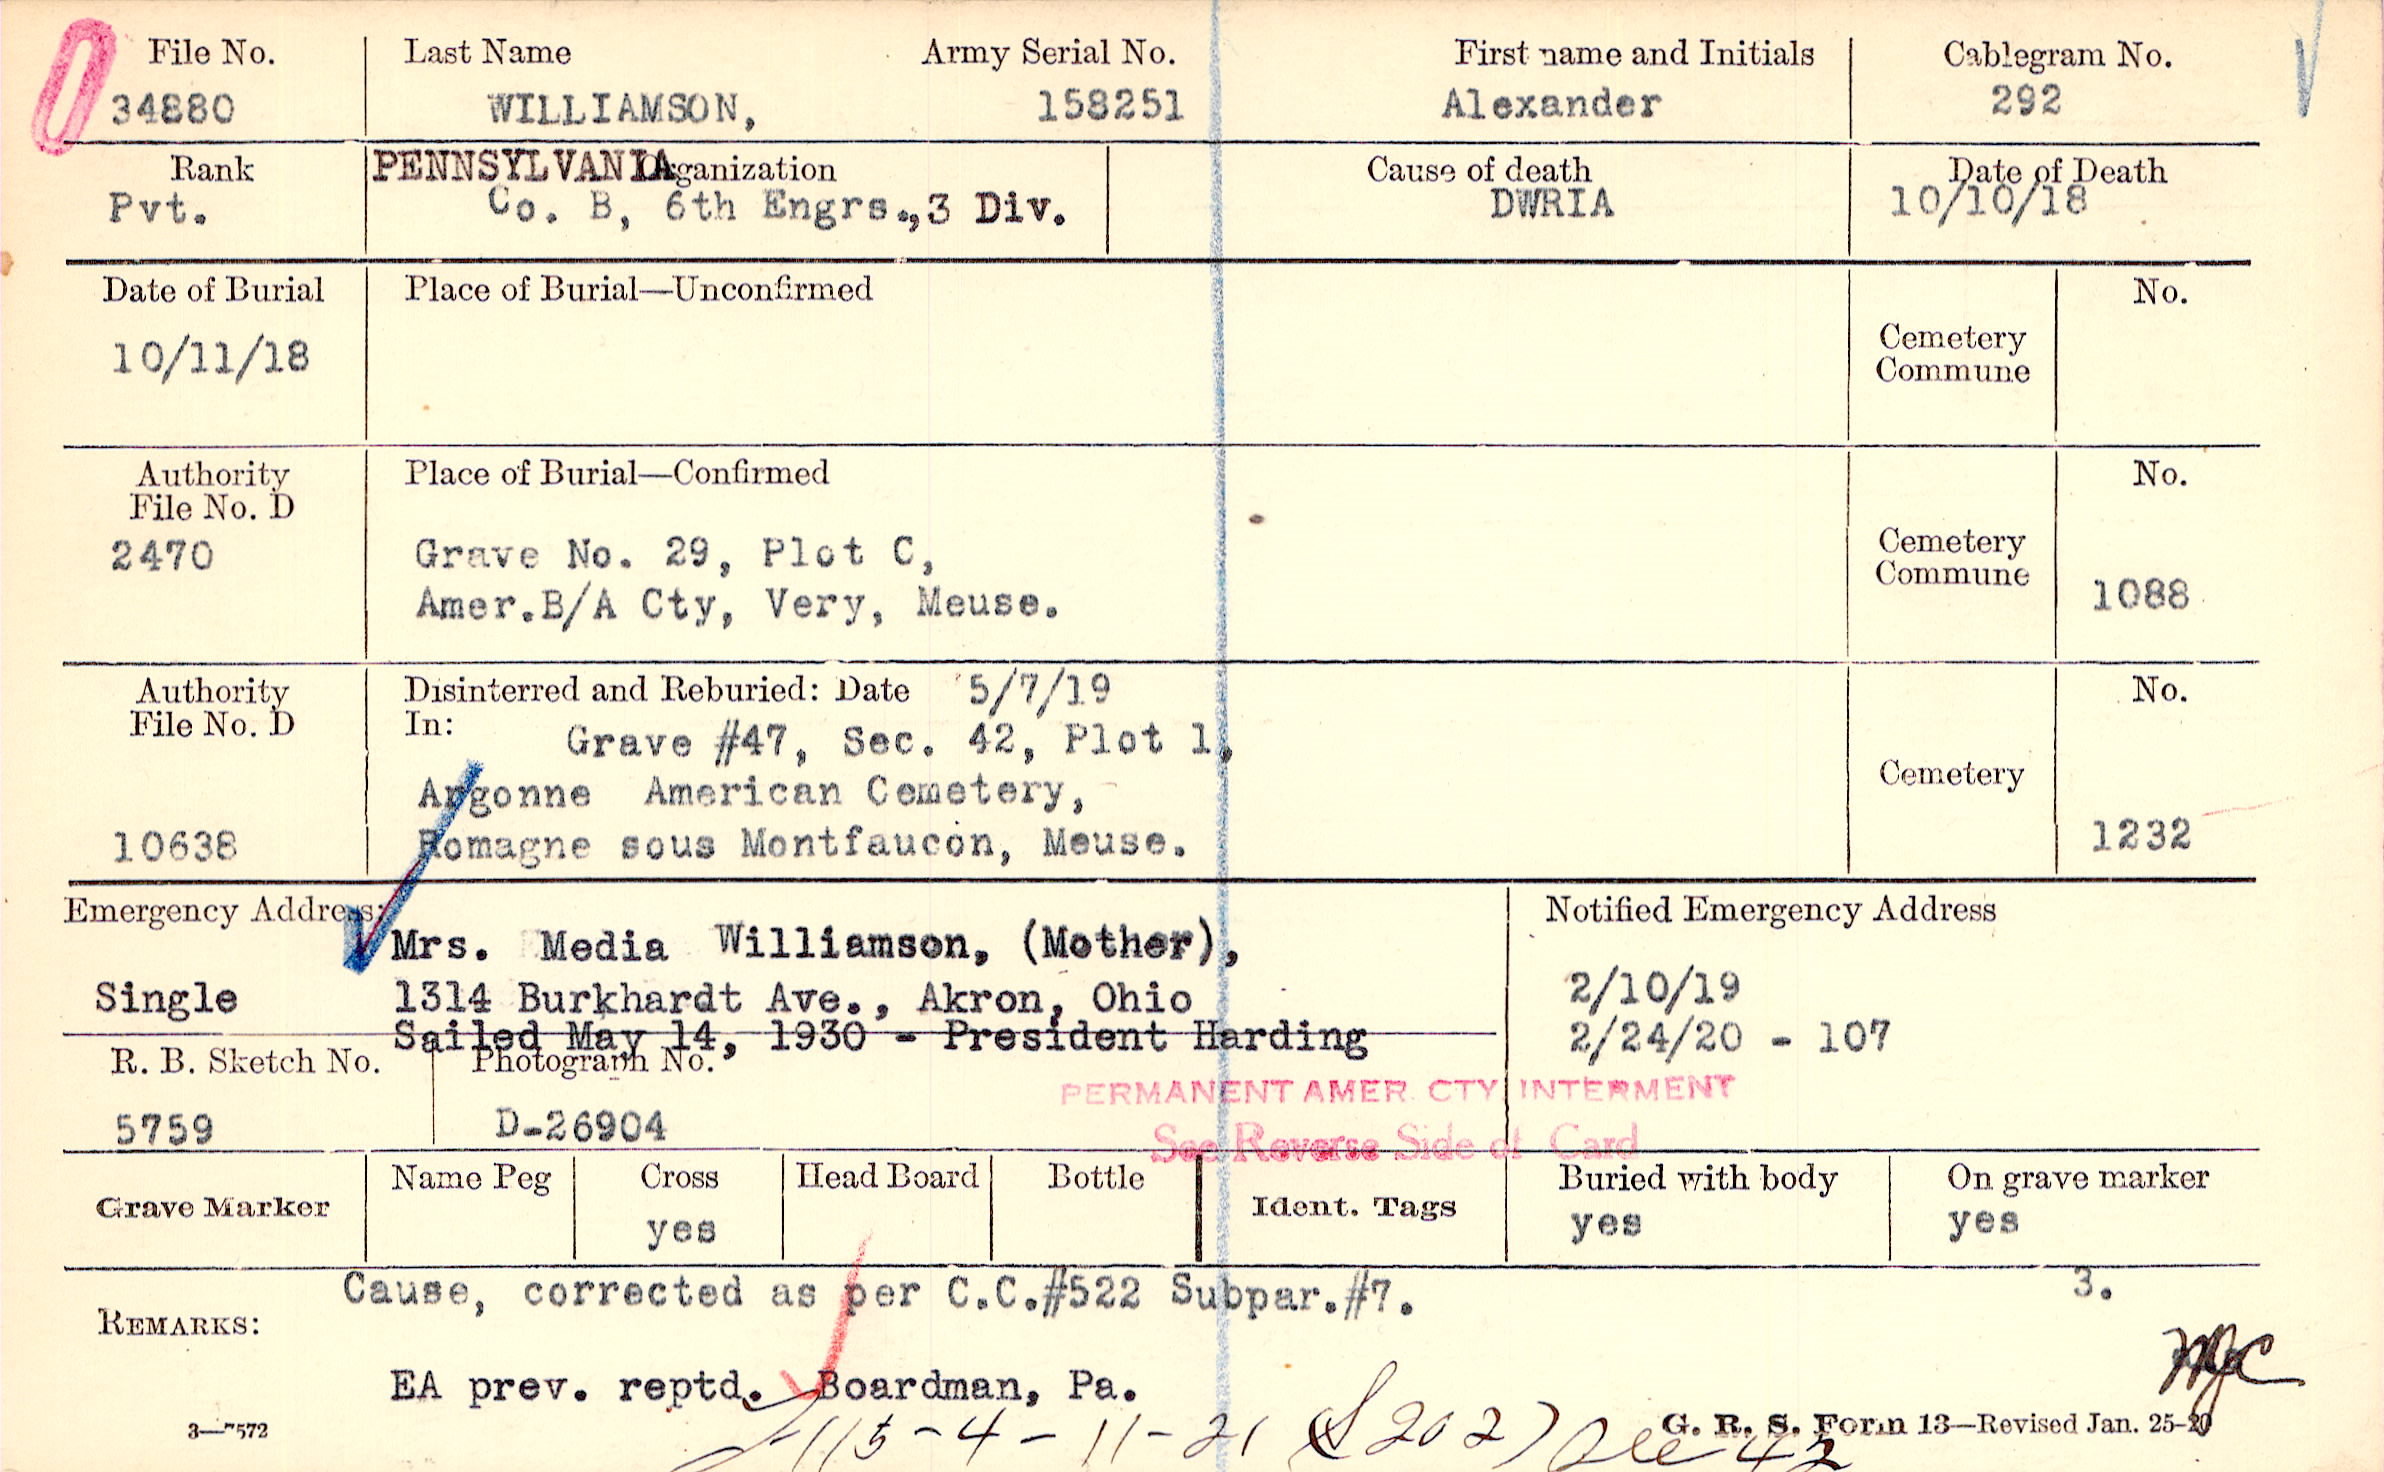 File No. Last Name Army Serial No. First name and Initials Cablegram No.
34880 WILLIAMSON, 158251 Alexander 292
Rank PENNSYLVANIA Organization Cause of death Date of Death
Pvt. Co. B, 6th Engrs., 3 Div. DWRIA 10/10/18
Date of Burial Place of Burial—Unconfirmed No.
10/11/18 Cemetery
Commune
Authority Place of Burial—Confirmed No.
File No. D
2470 Grave No. 29, Plot C, Cemetery
Commune
Amer.B/A Cty, Very, Meuse. 1088
Authority Disinterred and Reburied: Date 5/7/19 No.
File No. D In: Grave #47, Sec. 42, Plot 1,
Argonne American Cemetery, Cemetery
10638 Romagne sous Montfaucon, Meuse. 1232
Emergency Address: Notified Emergency Address
Mrs. Media Williamson, (Mother),
Single 1314 Burkhardt Ave., Akron, Ohio 2/10/19
Sailed May 14, 1930 - President Harding 2/24/20 - 107
R. B. Sketch No. Photograph No.
PERMANENT AMER. CTY. INTERMENT
5759 D-26904
See Reverse Side of Card
Grave Marker Name Peg Cross Head Board Bottle Ident. Tags Buried with body On grave marker
yes yes yes
Cause, corrected as per C.C.#522 Subpar.#7. 3.
REMARKS:
MJC
EA prev. reptd. Boardman, Pa.
3—7572 115-4-11-21 (S202) G. R. S. Form 13—Revised Jan. 25-20